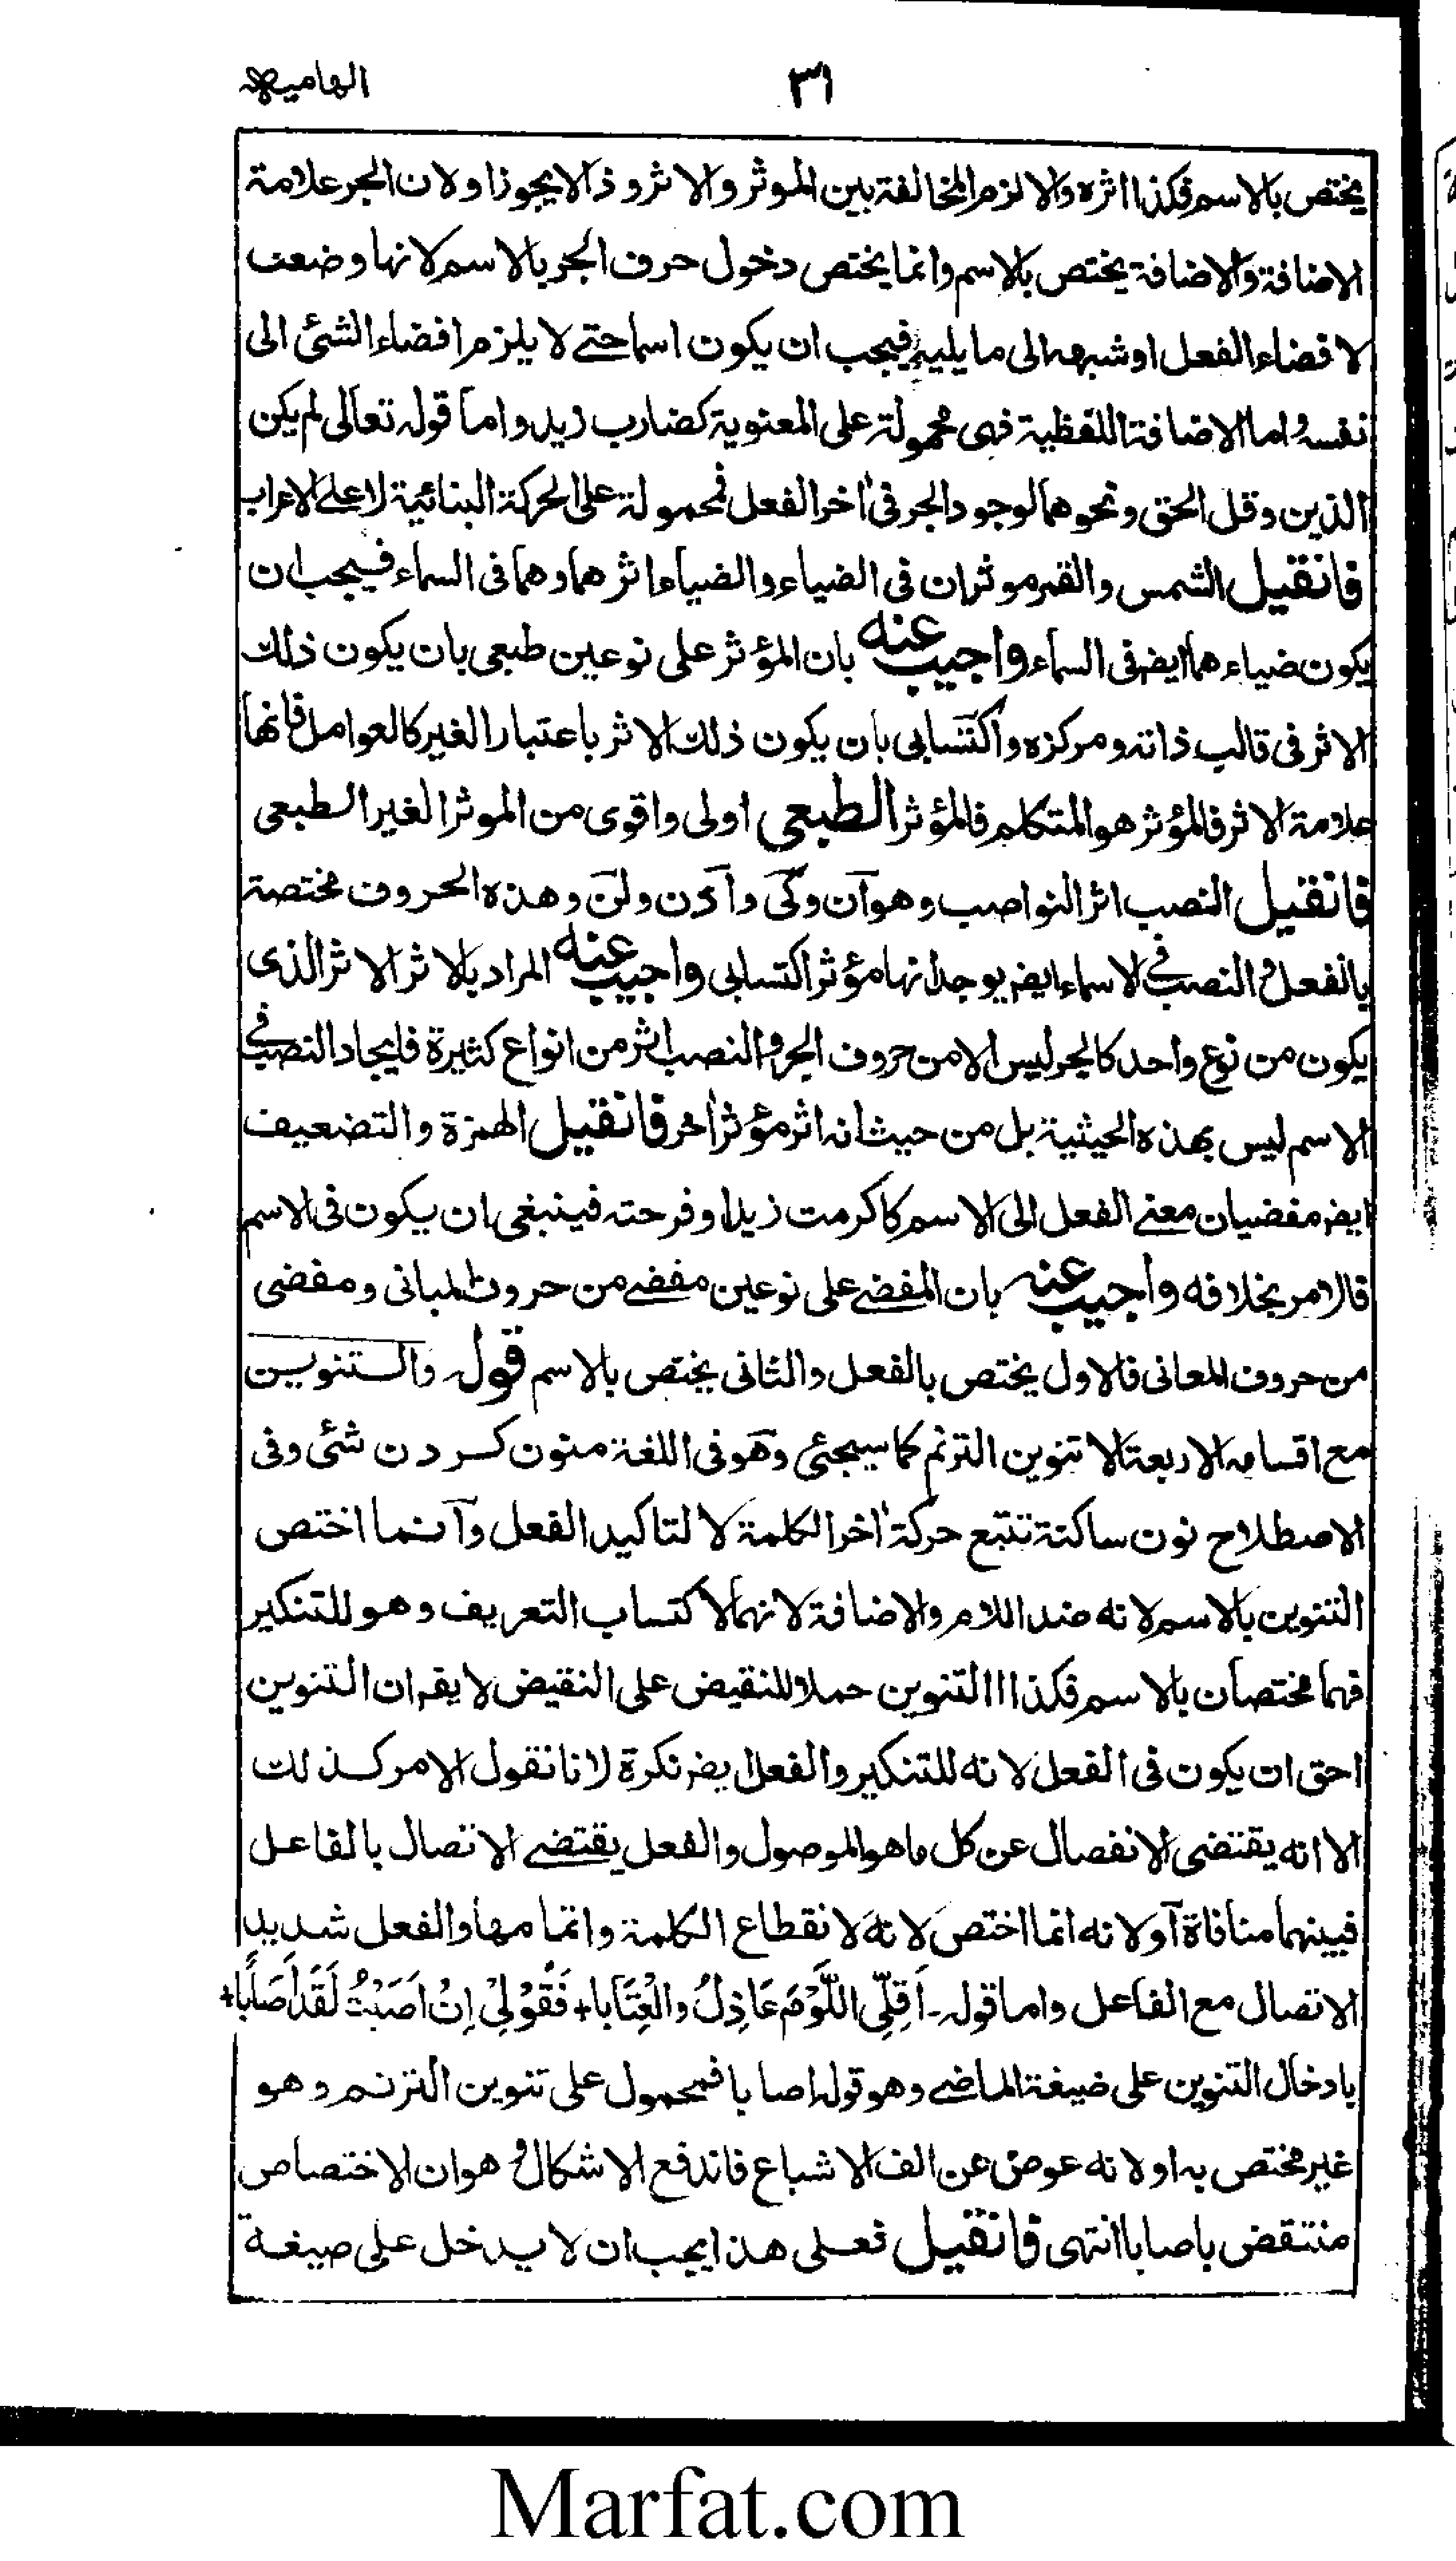 ٣١
الهامیه
یختص بالاسم فکذا اثره والا لزم المخالفة بین الموثر والاثر وذا لا یجوز او لان الجر علامة
الاضافة والاضافة یختص بالاسم وانما یختص دخول حرف الجر بالاسم لانها وضعت
لافضاء الفعل او شبهه الی ما یلیه فیجب ان یکون اسما حتے لا یلزم افضاء الشئ الی
نفسه و اما الاضافة اللفظیة فهی محمولة علی المعنویة کضارب زید واما قوله تعالی لم یکن
الذین وقل الحق ونحوهما لوجود الجر فی اخر الفعل فمحمولة علی الحرکة البنائیة لا علے الاعراب
فان قیل الشمس والقمر موثران فی الضیاء والضیاء اثرهما وهما فی السماء فیجب ان
یکون ضیاءهما ایضا فی السماء واجیب عنه بان المؤثر علی نوعین طبعی بان یکون ذلك
الاثر فی قالب ذاته ومرکزه واکتسابی بان یکون ذلك الاثر باعتبار الغیر کالعوامل فانها
علامة الاثر فالمؤثر هو المتکلم فالمؤثر الطبعی اولی واقوی من الموثر الغیر الطبعی
فان قیل النصب اثر النواصب وهو آن وکَی واذن ولن وهذه الحروف مختصة
بالفعل و النصب فی الاسماء ایضا یوجد انها مؤثر اکتسابی واجیب عنه المراد بالاثر الاثر الذی
یکون من نوع واحد کالجر لیس الا من حروف الجر و النصب اثر من انواع کثیرة فایجاد النصب فے
الاسم لیس بهذه الحیثیة بل من حیث انه اثر مؤثر اخر فان قیل الهمزة والتضعیف
ایضا مفضیان معنے الفعل الی الاسم کاکرمت زیدا وفرحته فینبغی ان یکون فی الاسم
فالامر بخلافه واجیب عنه بان المفضے علی نوعین مفضے من حروف المبانی ومفضی
من حروف المعانی فالاول یختص بالفعل والثانی یختص بالاسم قوله والتنوین
مع اقسامه الاربعة الا تنوین الترنم کما سیجئ وهو فی اللغة منون کردن شئ وفی
الاصطلاح نون ساکنة تتبع حرکة اخر الکلمة لا لتاکید الفعل وآنما اختص
التنوین بالاسم لانه ضد اللام والاضافة لانهما لاکتساب التعریف وهو للتنکیر
فهما مختصان بالاسم فکذا التنوین حملا للنقیض علی النقیض لا یقم ان التنوین
احق ان یکون فی الفعل لانه للتنکیر والفعل ایضا نکرة لانا نقول الامر کذلك
الا انه یقتضی الانفصال عن کل ما هو الموصول والفعل یقتضے الاتصال بالفاعل
فبینهما منافاة آو لانه انما اختص لانه لانقطاع الکلمة واتمامها والفعل شدید
الاتصال مع الفاعل واما قوله۔ اَقِلِّی اللَّوْمَ عَاذِلُ والْعِتَابا+ فَقُوْلِیْ اِنْ اَصَبْتُ لَقَدْ اَصَابًا+
بادخال التنوین علی ضیغة الماضے وهو قوله اصابا فمحمول علی تنوین الترنم وهو
غیر مختص به او لانه عوض عن الف الاشباع فاندفع الاشکال و هو ان الاختصاص
منتقض باصابا انتهی فان قیل فعلی هذا یجب ان لا یدخل علی صیغة
Marfat.com